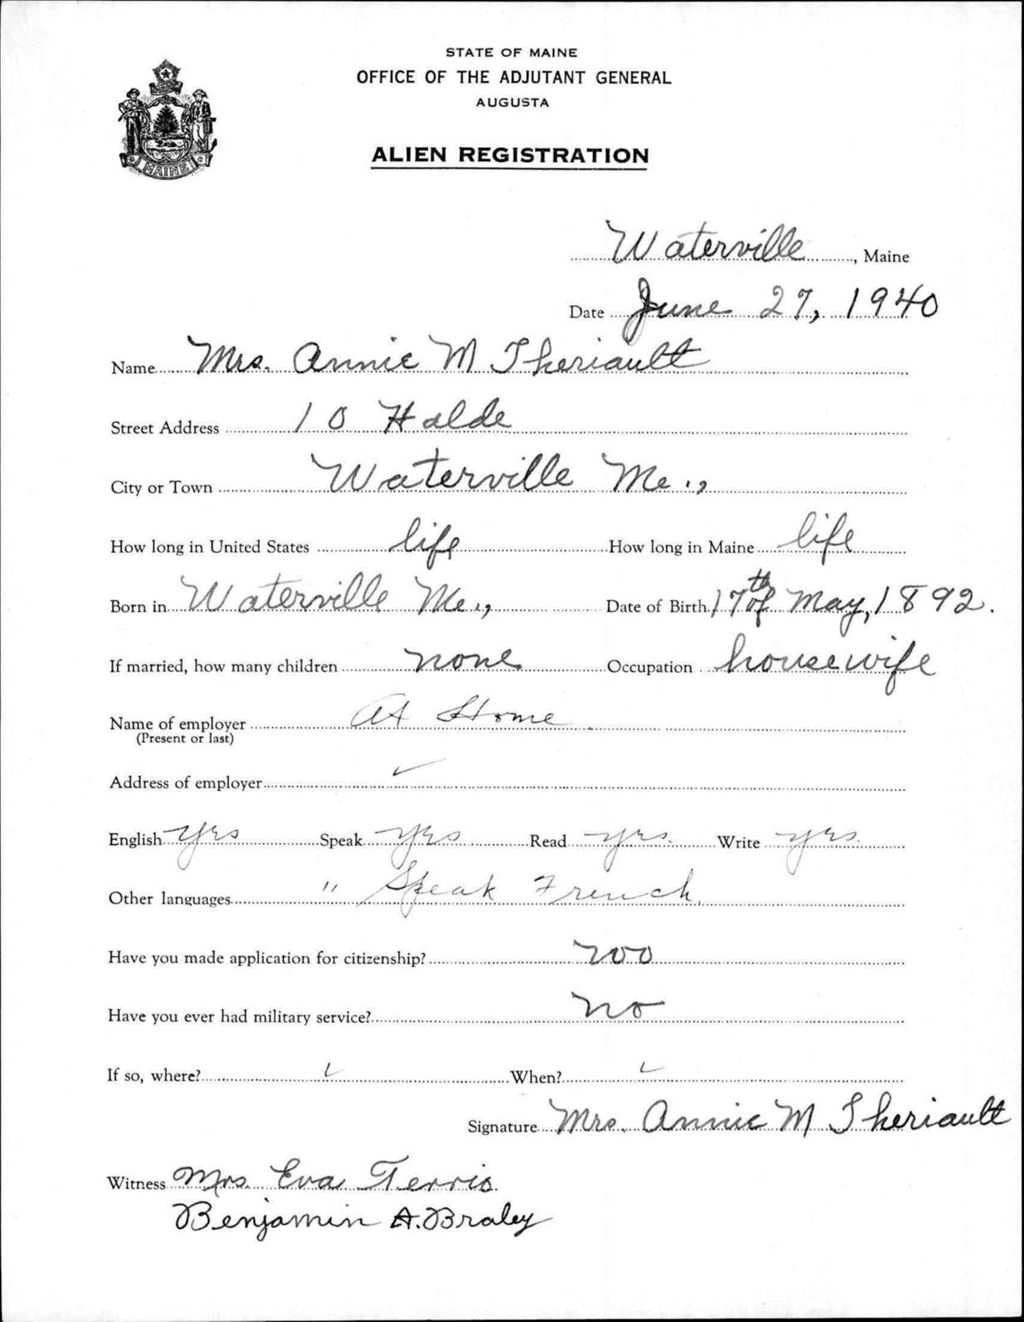 STATE OF MAINE
OFFICE OF THE ADJUTANT GENERAL
AUGUSTA
ALIEN REGISTRATION
MAINE
Waterville, Maine
Date June 27, 1940
Name Mrs. Annie M Theriault
Street Address 10 Halde
City or Town Waterville Me.,
How long in United States life How long in Maine life
Born in Waterville Me., Date of Birth 17th of May, 1892.
If married, how many children none Occupation housewife
Name of employer At Home
(Present or last)
Address of employer ✓
English yes Speak yes Read yes. Write yes.
Other languages " Speak French.
Have you made application for citizenship? no
Have you ever had military service? no
If so, where? ✓ When? ✓
Signature Mrs. Annie M Theriault
Witness Mrs. Eva Ferris
Benjamin A. Braley